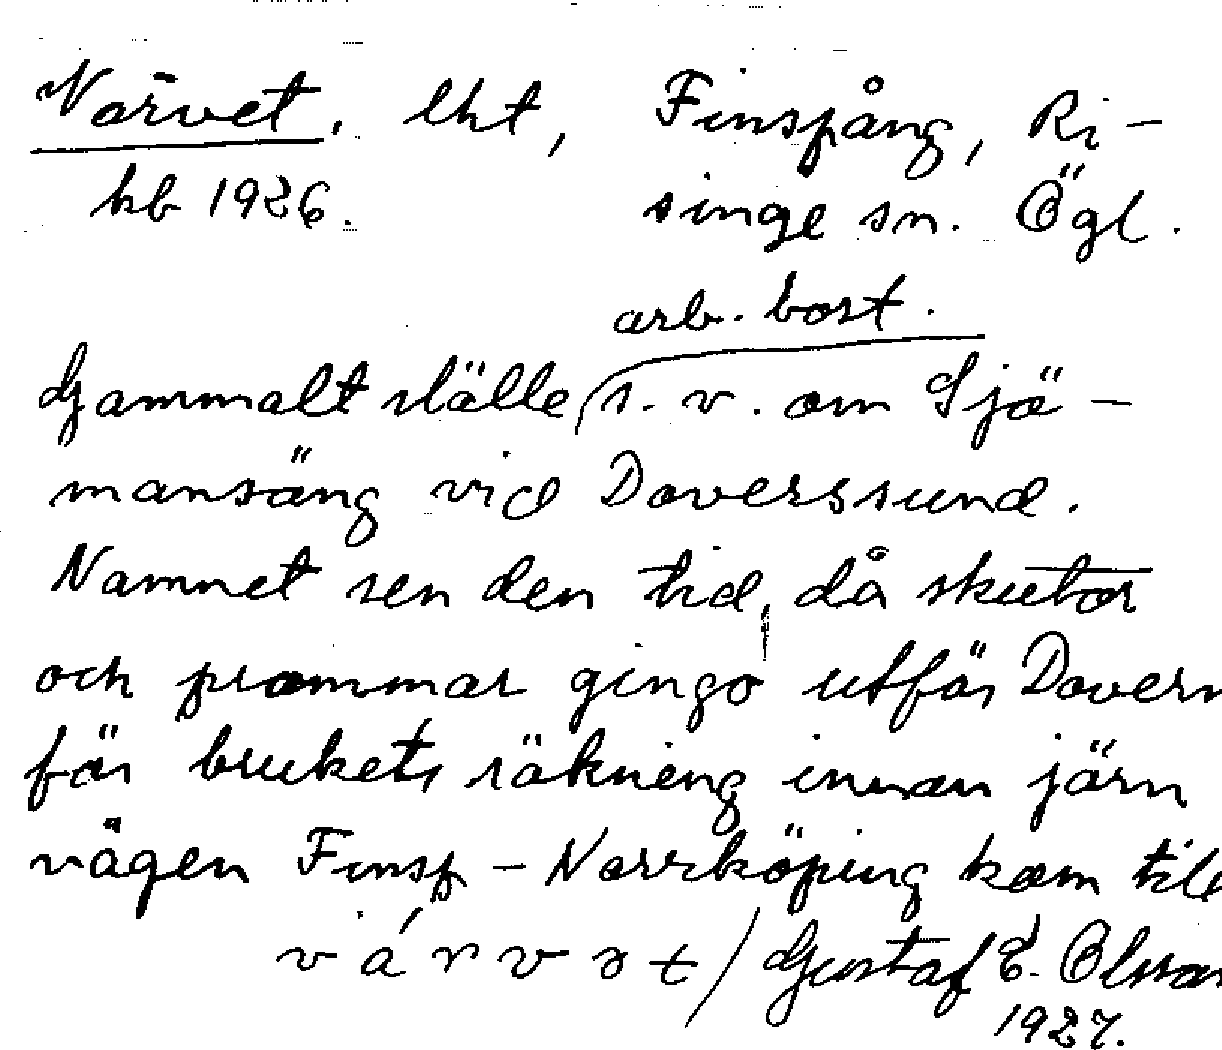 Varvet, lht, Finspång, Ri-
hb 1926. singe sn. Ögl.
arb. bost.
Gammalt ställe, s. v. om Sjö-
mansäng vid Doverssund.
Namnet sen den tid, då skutor
och prommar gingo utför Dovern
för brukets räkning innan järn
vägen Finsp - Norrköping kom till
várvət / Gustaf E. Olsson
1927.